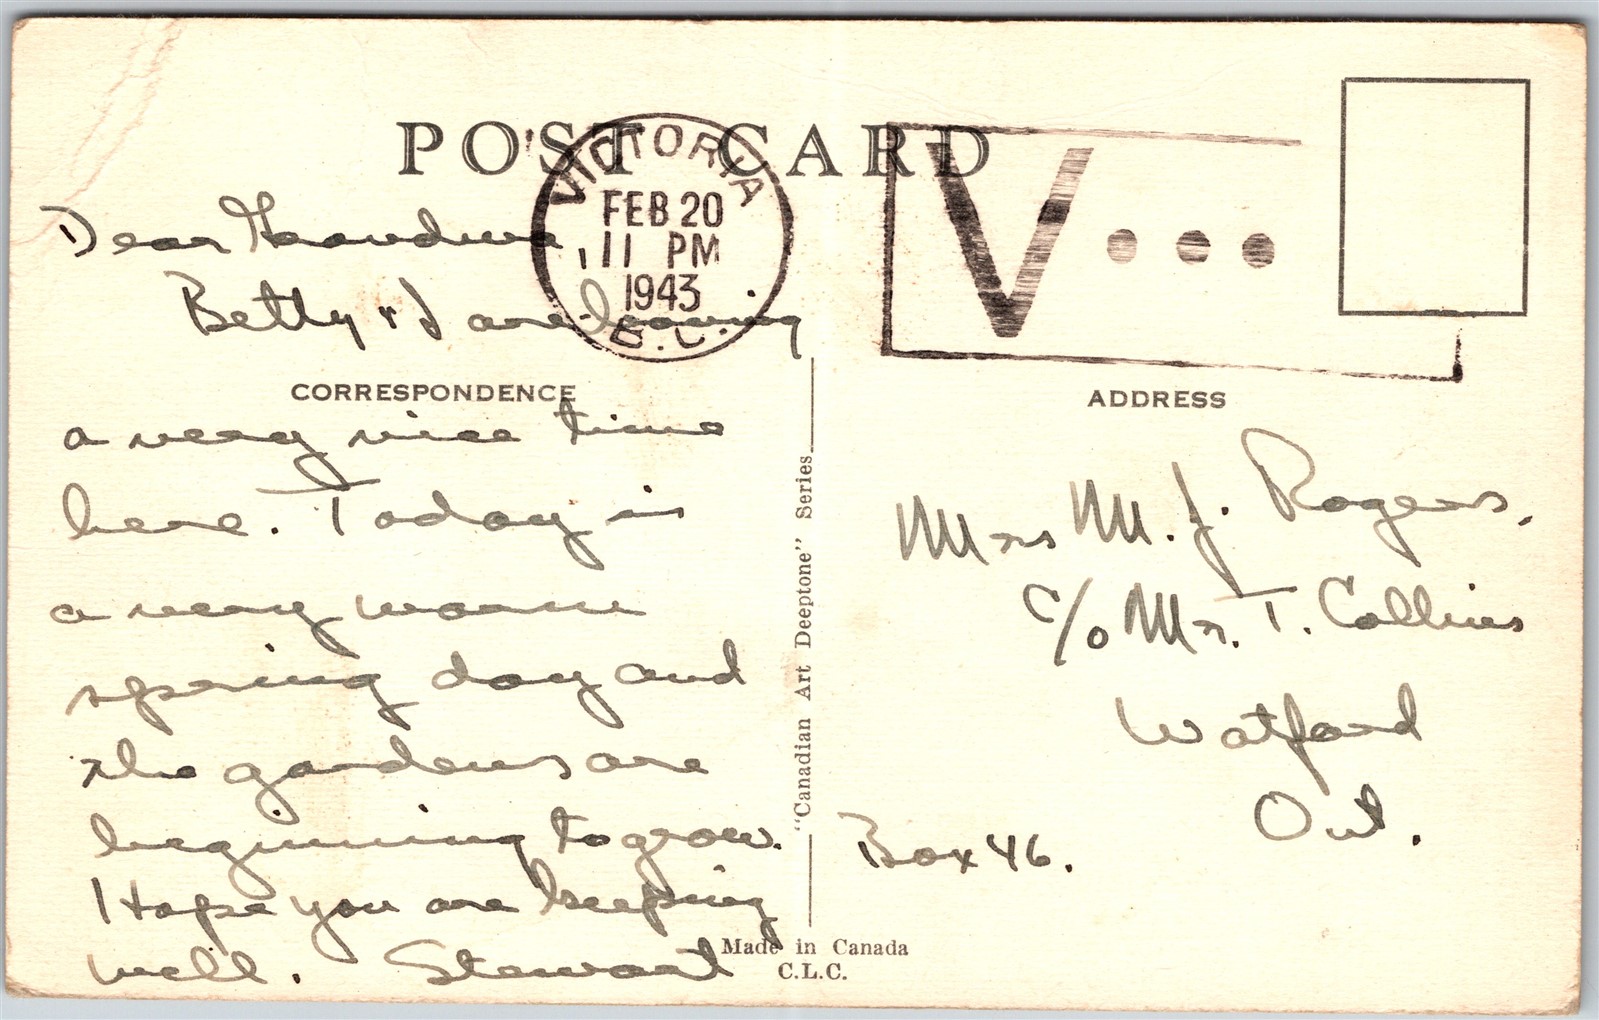 POST CARD
VICTORIA
FEB 20
11 PM
1943
B.C.
V...
Dear Grandma,
Betty & I are having
CORRESPONDENCE
a very nice time
here. Today is
a very warm
spring day and
the gardens are
beginning to grow.
Hope you are keeping
well. Stewart
"Canadian Art Deeptone" Series
ADDRESS
Mrs M. J. Rogers,
c/o Mr. T. Collins
Watford
Ont.
Box 46.
Made in Canada
C.L.C.